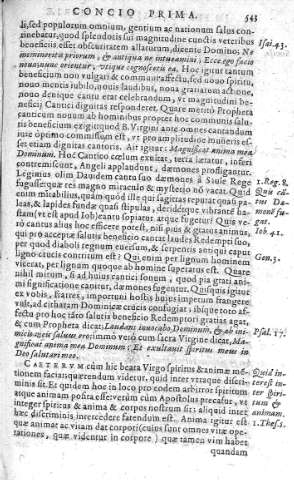 CONCIO PRIMA. 543
li, sed populorum omnium, gentium ac nationum salus con-
tinebatur, quod splendoris sui magnitudine cunctis veteribus
beneficiis esset obscuritatem allaturum, dicente Domino: Ne
memineritis priorum, & antiqua ne intueamini, Ecce ego facio
noua, & nunc orientur, vtique cognoscetis ea. Hoc igitur tantum
beneficium non vulgari & communi affectu, sed nouo spiritu,
nouo mentis iubilo, nouis laudibus, noua gratiarum actione,
nouo denique cantu erat celebrandum, vt magnitudini be-
neficij Cantici dignitas responderet. Quare merito Propheta
canticum nouum ab hominibus propter hoc commune salu-
tis beneficium exigit: quod B. Virgini ante omnes cantandum
iure optimo commissum est, vt pro amplitudine muneris es-
set etiam dignitas cantoris. Ait igitur: Magnificat anima mea
Dominum. Hoc Cantico cælum exultat, terra lætatur, inferi
contremiscunt, Angeli applaudunt, dæmones profligantur.
Legimus olim Dauidem cantu suo dæmones à Saüle Rege
fugasse:
leas, & lapides fundæ quasi stipulas, derideátque vibrantē ha-
stam (vt est apud Iob)
rò cantus alius hoc efficere potest, nisi pius & gratus animus,
qui pro accepto salutis beneficio cantat laudes Redemptori suo,
per quod diaboli regnum euersum, & serpentis antiqui caput
ligno crucis contritum est? Qui enim per lignum hominem
vicerat, per lignum quoque ab homine superatus est. Quare
nihil mirum, si ad huius cantici sonum, quod pia grati ani-
mi significatione canitur, dæmones fugentur. Quisquis igitur
ex vobis, fratres, importuni hostis huius impetum frangere
vult, ad certam Dominicæ crucis confugiat: ibique toto af-
fectu pro hoc tanto salutis beneficio Redemptori gratias agat,
& cum Propheta dicat, Laudans inuocabo Dominum, & ab ini-
micis meis saluus ero: immò verò cum sacra Virgine dicat, Ma-
gnificat anima mea Dominum: Et exultauit spiritus meus in
Deo salutari meo.
CAETERVM cùm hic beata Virgo spiritus & animæ mē-
tionem faciat, quærendum videtur, quid inter vtraque discri-
minis sit. Et quidem hoc in loco pro eodem arbitror spiritum
atque animam posita esse: verùm cùm Apostolus precatur, vt
integer spiritus & anima & corpus nostrum sit: aliquid inter
hæc discriminis intercedere fatendum est. Anima igitur est
quæ animat ac vitam dat corpori (cuius sunt omnes vitæ ope-
rationes, quæ videntur in corpore) quæ tamen vim habet
quandam
Isai. 43.
1. Reg.
Iob. 41.
Gen. 3.
Psal. 17.
Quid in-
terest in-
ter spiri-
tum &
animam.
1. Thes. 5.